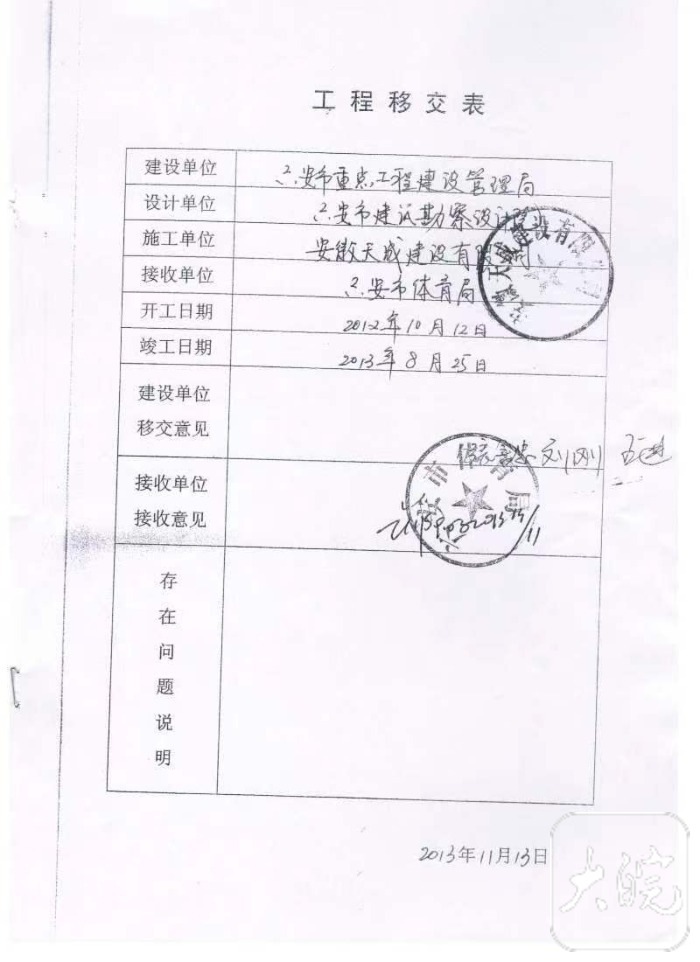 工程移交表
建设单位 六安市重点工程建设管理局
设计单位 六安市建设勘察设计院
施工单位 安徽天成建设有限公司
接收单位 六安市体育局
开工日期 2012年10月12日
竣工日期 2013年8月25日
建设单位
移交意见
刘刚
接收单位
接收意见
存
在
问
题
说
明
2013年11月13日
大皖